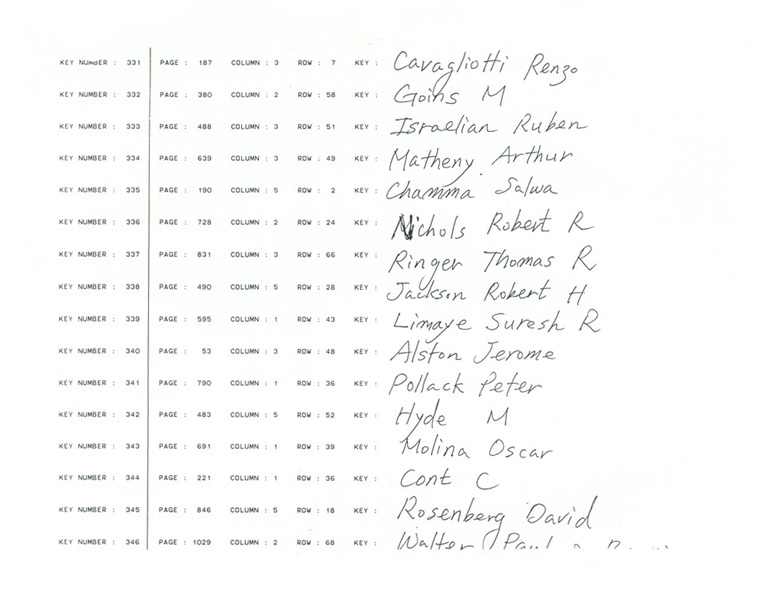 KEY NUMBER : 331 PAGE : 187 COLUMN : 3 ROW : 7 KEY : Cavagliotti Renzo
KEY NUMBER : 332 PAGE : 380 COLUMN : 2 ROW : 58 KEY : Goins M
KEY NUMBER : 333 PAGE : 488 COLUMN : 3 ROW : 51 KEY : Israelian Ruben
KEY NUMBER : 334 PAGE : 639 COLUMN : 3 ROW : 49 KEY : Matheny Arthur
KEY NUMBER : 335 PAGE : 190 COLUMN : 5 ROW : 2 KEY : Chamma Salwa
KEY NUMBER : 336 PAGE : 728 COLUMN : 2 ROW : 24 KEY : Nichols Robert R
KEY NUMBER : 337 PAGE : 831 COLUMN : 3 ROW : 66 KEY : Ringer Thomas R
KEY NUMBER : 338 PAGE : 490 COLUMN : 5 ROW : 28 KEY : Jackson Robert H
KEY NUMBER : 339 PAGE : 595 COLUMN : 1 ROW : 43 KEY : Limaye Suresh R
KEY NUMBER : 340 PAGE : 53 COLUMN : 3 ROW : 48 KEY : Alston Jerome
KEY NUMBER : 341 PAGE : 790 COLUMN : 1 ROW : 36 KEY : Pollack Peter
KEY NUMBER : 342 PAGE : 483 COLUMN : 5 ROW : 52 KEY : Hyde M
KEY NUMBER : 343 PAGE : 691 COLUMN : 1 ROW : 39 KEY : Molina Oscar
KEY NUMBER : 344 PAGE : 221 COLUMN : 1 ROW : 36 KEY : Cont C
KEY NUMBER : 345 PAGE : 846 COLUMN : 5 ROW : 18 KEY : Rosenberg David
KEY NUMBER : 346 PAGE : 1029 COLUMN : 2 ROW : 68 KEY : Walter Paul